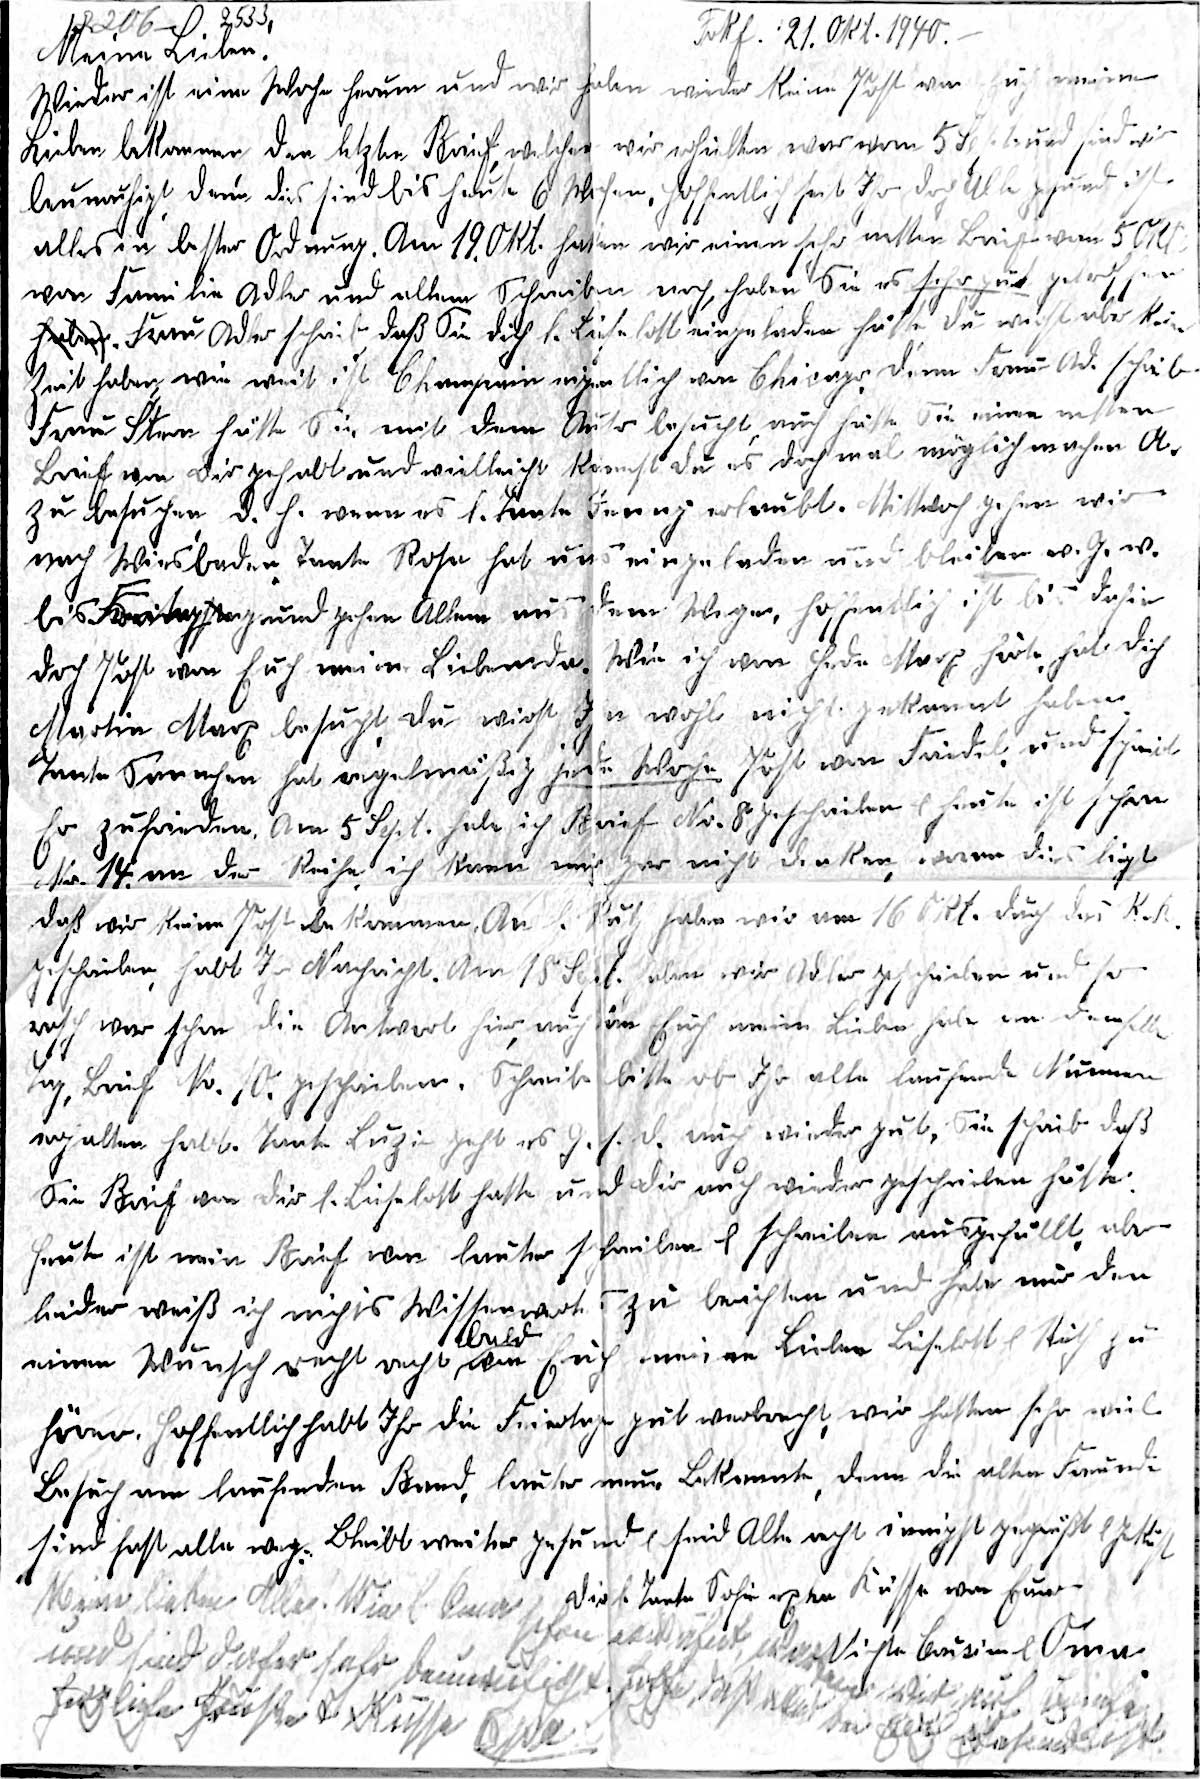 2206 2533.
Frkf. 21. Okt. 1940.
Meine Lieben.
Wieder ist eine Woche herum und wir haben wieder keine Post von Euch meine
Lieben bekommen den letzten Brief, welchen wir erhielten war vom 5 und sind wir
beunruhigt, denn dies sind bis heute 6 Wochen, hoffentlich seit Ihr doch Alle gesund ist
alles in bester Ordnung. Am 19. Okt. hatten wir einen sehr netten Brief vom 5 Okt.
von Familie Adler und allem Schreiben nach, haben Sie es sehr gut getroffen
haben. Frau Adler schrieb daß Sie dich l. Liselott eingeladen hätte, du wirst aber keine
Zeit haben, wie weit ist Champain eigentlich von Chicago, denn Frau Ad. schrieb
Frau Stern hätte Sie mit dem Auto besucht, auch hätte Sie einen netten
Brief von Dir gehabt und vielleicht kannst du es doch mal möglich machen A.
zu besuchen, d. h. wenn es l. Tante Fanny erlaubt. Mittwoch gehen wir
nach Wiesbaden, Tante Rosa hat uns eingeladen und bleiben w. G. w.
bis Freitag und gehen Allem aus dem Wege, hoffentlich ist bis dahin
doch Post von Euch meine Lieben da. Wie ich von Hede Marx hörte, hat Dich
Martin Marx besucht, du wirst Ihn wohl nicht gekannt haben.
Tante Sannchen hat regelmäßig jede Woche Post von Friedel, und schreibt
Er zufrieden. Am 5 Sept. habe ich Brief No. 8 geschrieben & heute ist schon
No. 14. an der Reihe, ich kann mir gar nicht denken, woran dies liegt
daß wir keine Post bekommen. An l. Ruth haben wir am 16 Okt. duch das R.K.
geschrieben, habt Ihr Nachricht. Am 18 Sept. haben wir Adler geschrieben und so
rasch war schon die Antwort hier, auch an Euch meine Lieben habe an demselben
Tag, Brief No. 10. geschrieben. Schreibe bitte ob Ihr alle laufende Nummern
erhalten habt. Tante Luzie geht es G. s. d. auch wieder gut, Sie schrieb daß
Sie Brief von dir l. Liselott hatte und dir auch wieder geschrieben hätte.
Heute ist mein Brief von lauter schreiben & schreiben ausgefüllt, aber
leider weiß ich nichts Wissenwertes zu berichten und habe nur den
einen Wunsch recht recht bald von Euch meine Lieben Liselott & Ruth zu
hören. Hoffentlich habt Ihr die Feiertage gut verbracht, wir hatten sehr viel
Besuch am laufenden Band, lauter neue Bekannte, denn die alten Freunde
sind fast alle weg. Bleibt weiter gesund & seid Alle recht innigst gegrüßt & geküßt
Dir l. Tante Sofie extra Küsse von Eurer
Nichte Cousine & Oma.
Meine lieben Alle. Wie l. Oma schon erwähnt, wir auch
und sind daher sehr beunruhigt. hoffe, daß alles bei Euch gesund ist.
Herzliche Grüße & Küsse Opa